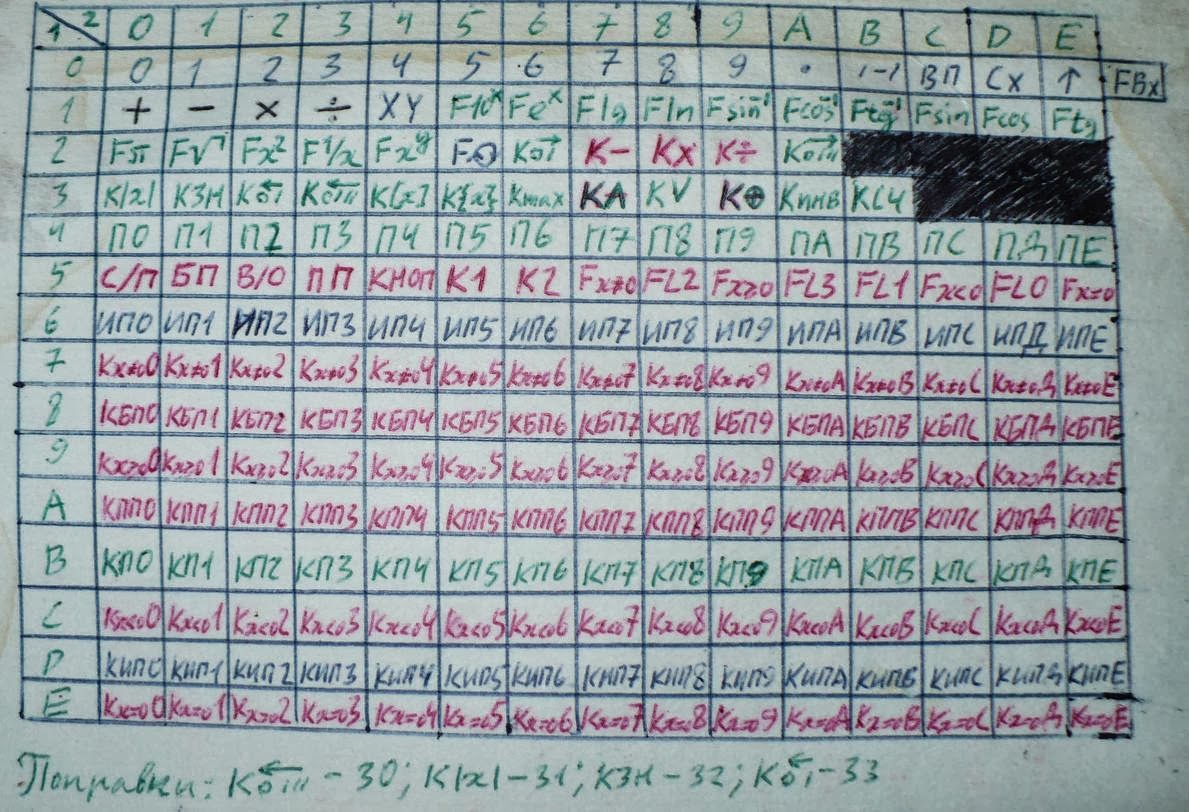 1 2 0 1 2 3 4 5 6 7 8 9 A B C D E
0 0 1 2 3 4 5 6 7 8 9 · /-/ ВП Сх ↑ FBx
1 + − × ÷ XY F10ˣ Feˣ Flg Fln Fsin⁻¹ Fcos⁻¹ Ftg⁻¹ Fsin Fcos Ftg
2 Fπ F√ Fx² F1/x Fxʸ F↻ К о→′ К− К× К÷ К о→‴
3 К|x| КЗН К о←′ К о←‴ К[x] К{x} Кmax КΛ КV К⊕ Кинв КСЧ
4 П0 П1 П2 П3 П4 П5 П6 П7 П8 П9 ПА ПВ ПС ПД ПЕ
5 С/П БП В/О ПП КНОП К1 К2 Fx≠0 FL2 Fx≥0 FL3 FL1 Fx<0 FL0 Fx=0
6 ИП0 ИП1 ИП2 ИП3 ИП4 ИП5 ИП6 ИП7 ИП8 ИП9 ИПА ИПВ ИПС ИПД ИПЕ
7 Кx≠00 Кx≠01 Кx≠02 Кx≠03 Кx≠04 Кx≠05 Кx≠06 Кx≠07 Кx≠08 Кx≠09 Кx≠0А Кx≠0В Кx≠0С Кx≠0Д Кx≠0Е
8 КБП0 КБП1 КБП2 КБП3 КБП4 КБП5 КБП6 КБП7 КБП8 КБП9 КБПА КБПВ КБПС КБПД КБПЕ
9 Кx≥00 Кx≥01 Кx≥02 Кx≥03 Кx≥04 Кx≥05 Кx≥06 Кx≥07 Кx≥08 Кx≥09 Кx≥0А Кx≥0В Кx≥0С Кx≥0Д Кx≥0Е
A КПП0 КПП1 КПП2 КПП3 КПП4 КПП5 КПП6 КПП7 КПП8 КПП9 КППА КППВ КППС КППД КППЕ
B КП0 КП1 КП2 КП3 КП4 КП5 КП6 КП7 КП8 КП9 КПА КПВ КПС КПД КПЕ
C Кx<00 Кx<01 Кx<02 Кx<03 Кx<04 Кx<05 Кx<06 Кx<07 Кx<08 Кx<09 Кx<0А Кx<0В Кx<0С Кx<0Д Кx<0Е
D КИП0 КИП1 КИП2 КИП3 КИП4 КИП5 КИП6 КИП7 КИП8 КИП9 КИПА КИПВ КИПС КИПД КИПЕ
E Кx=00 Кx=01 Кx=02 Кx=03 Кx=04 Кx=05 Кx=06 Кx=07 Кx=08 Кx=09 Кx=0А Кx=0В Кx=0С Кx=0Д Кx=0Е
Поправки: К о←‴ - 30; К|x| - 31; КЗН - 32; К о←′ - 33